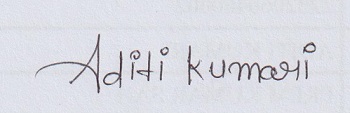 Aditi kumari